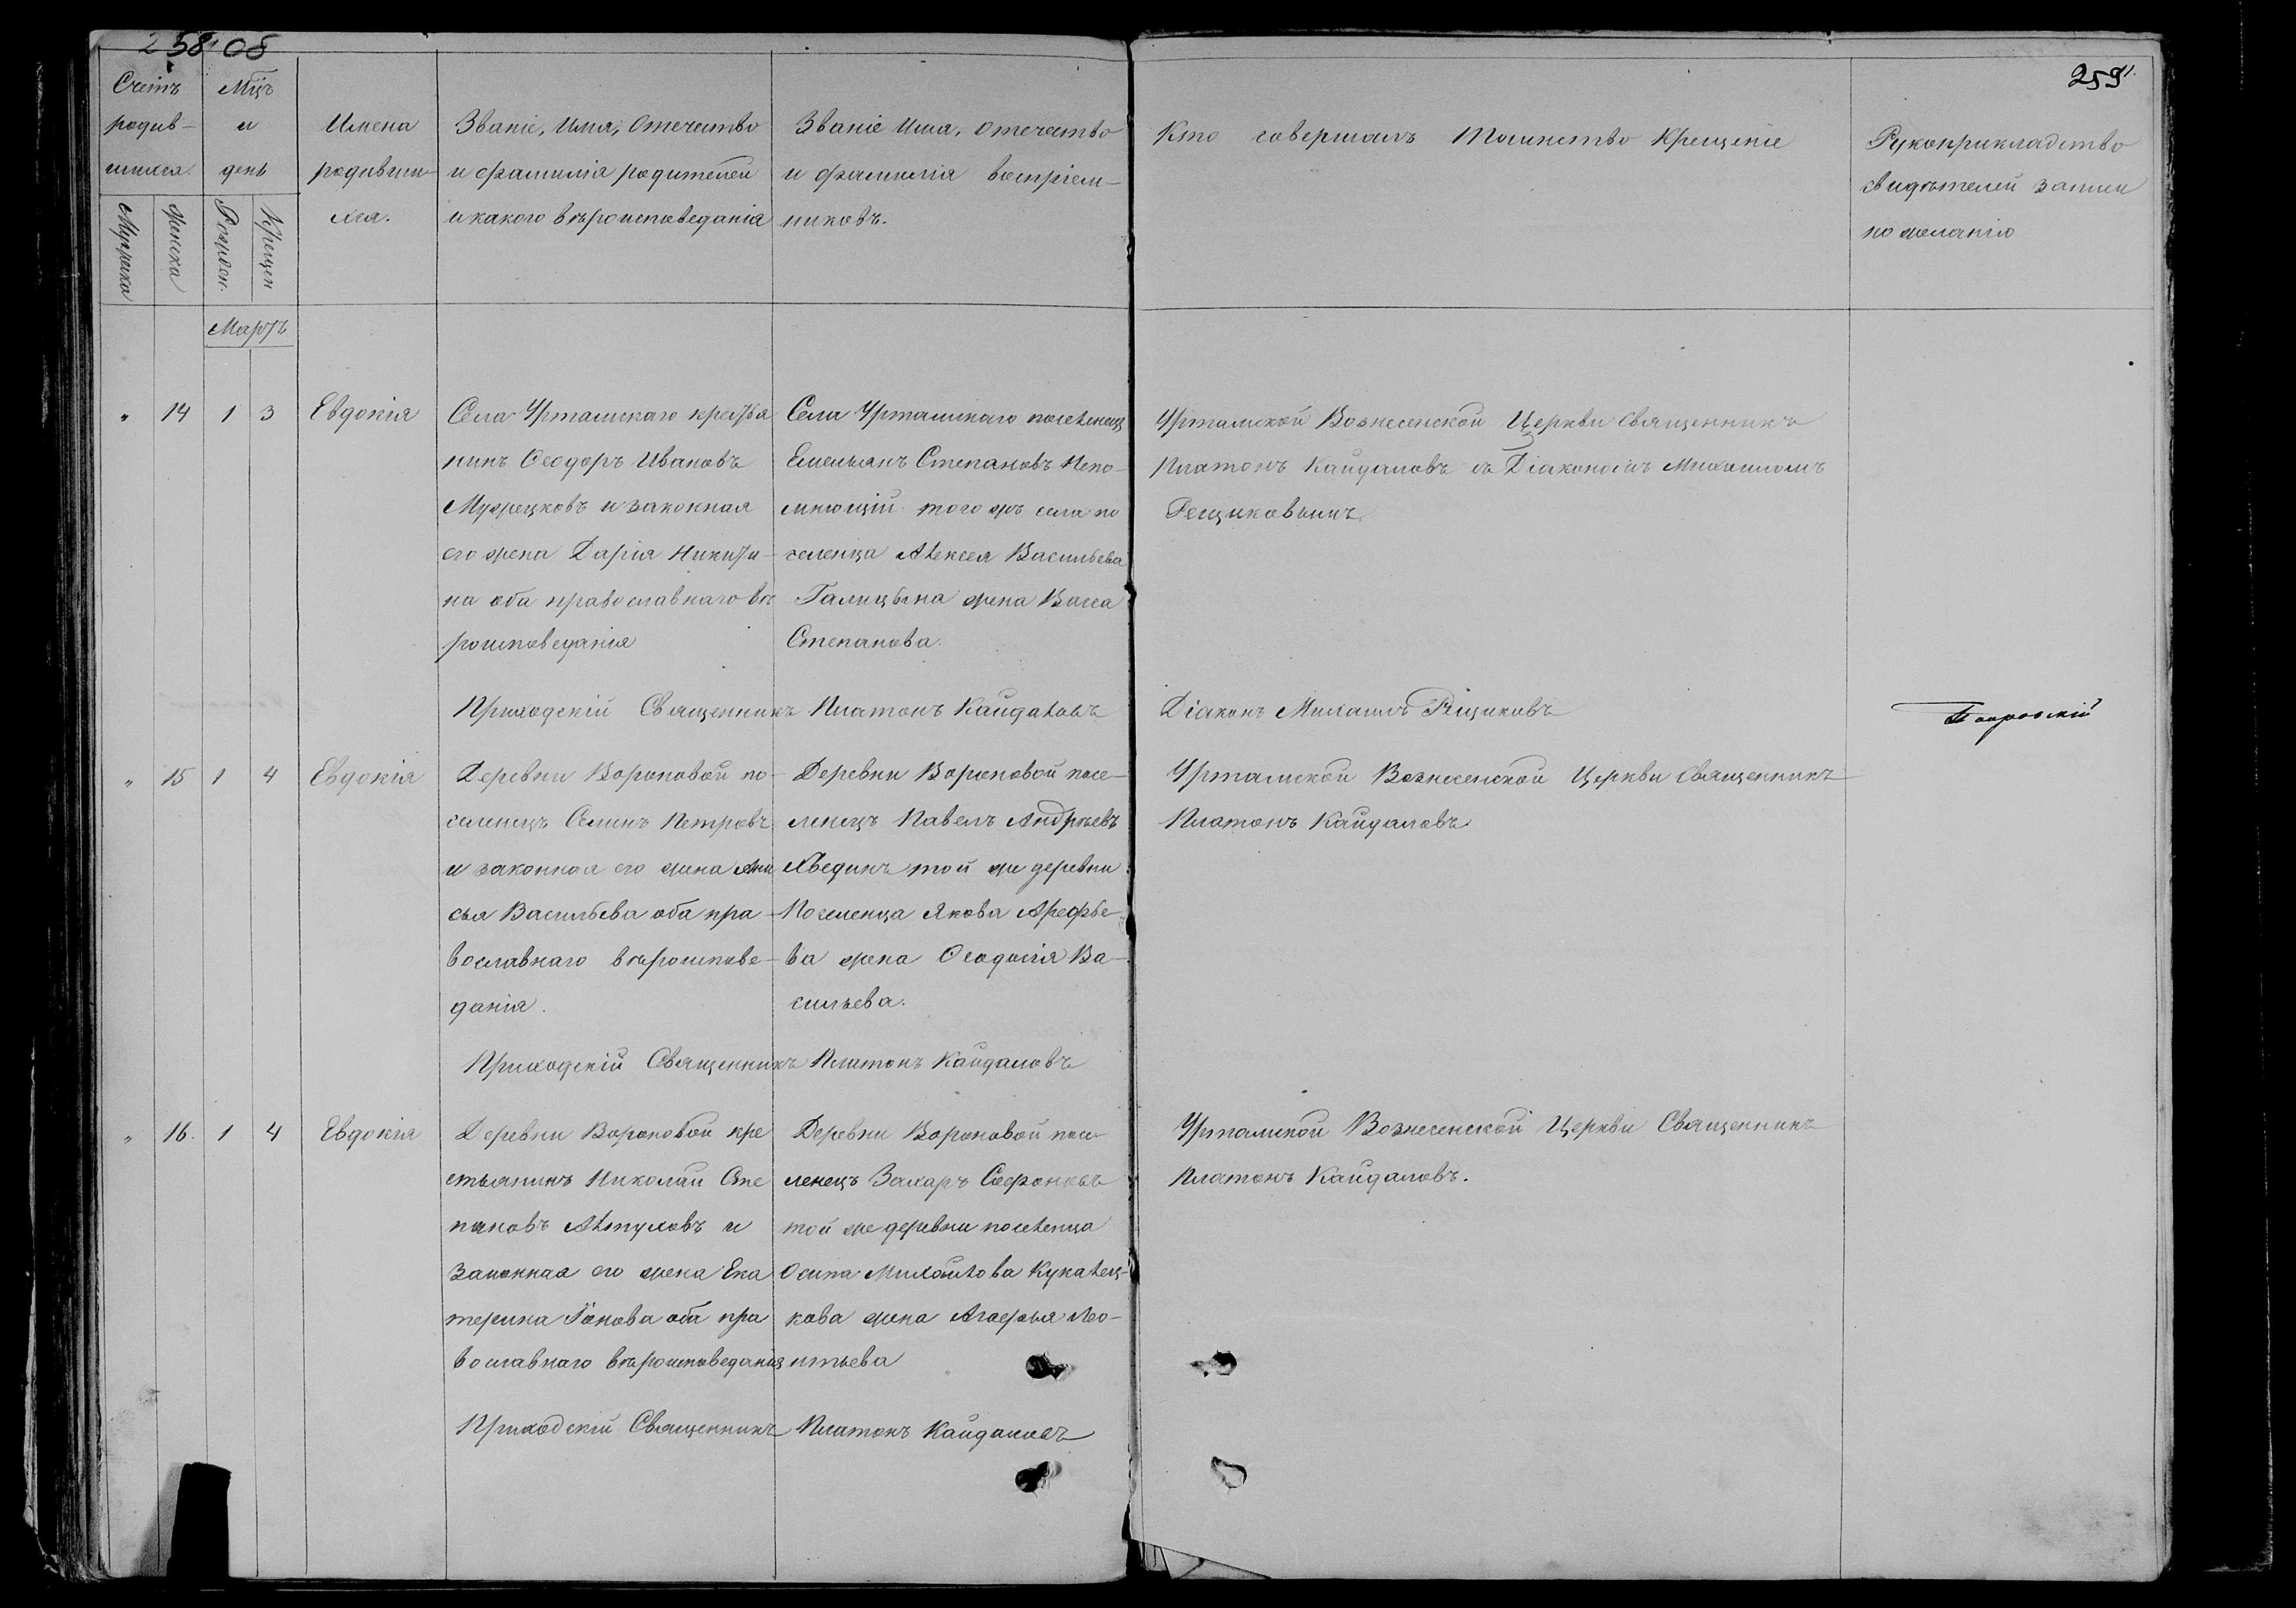 258 об
259
Счетъ
родив-
шихся.
Мужска
Женска
Мцъ
и
день
Рожден.
Крещен
Имена
родивши-
хся.
Званіе, Имя, Отечество
и фамилія родителей
и какого вѣроисповеданія
Званіе Имя, отечество
и фамилія воспріем-
никовъ.
Кто совершалъ Таинство Крещеніе
Рукоприкладство
свидѣтелей записи
по желанію
Мартъ
" 14 1 3 Евдокія
Села Уртамскаго крестья
нинъ Ѳеодоръ Ивановъ
и законная
его жена Дарія Никити-
на оба православнаго вѣ
роисповеданія
Села Уртамскаго поселенец
Емельянъ Степановъ Непо-
мнющій того жъ села по
селенца Алексея Васильева
Галицына жена Васса
Степанова.
Уртамской Вознесенской Церкви Священникъ
Платонъ Кайдаловъ съ Діакономъ Михаиломъ
Рещиковымъ
Приходскій Священникъ Платонъ Кайдаловъ
Діаконъ Михаилъ Рещиковъ
" 15 1 4 Евдокія
Деревни Вороновой по-
селенецъ Семенъ Петровъ
и законная его жена Ани
сья Васильева оба пра-
вославнаго вѣроисповe-
данія.
Деревни Вороновой посе-
ленецъ Павелъ Андрѣевъ
той же деревни
Поселенца Якова Арефье-
ва жена Ѳеодосія Ва-
сильева.
Уртамской Вознесенской Церкви Священникъ
Платонъ Кайдаловъ
Приходскій Священникъ Платонъ Кайдаловъ
" 16. 1 4 Евдокія
Деревни Вороновой кре
стьянинъ Николай Сте
пановъ Алтуховъ и
законная его жена Ека
терина Іонова оба пра
вославнаго вѣроисповеданія
Деревни Вороновой посе-
ленецъ Захаръ Софоновъ
той же деревни поселенца
Осипа Михайлова
кова жена Агафья Лео-
нтьева
Уртамской Вознесенской Церкви Священникъ
Платонъ Кайдаловъ.
Приходскій Священникъ Платонъ Кайдаловъ